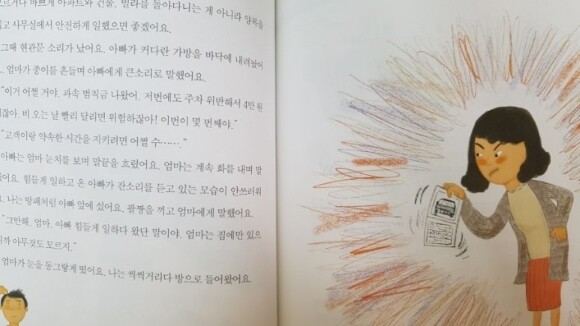 오르거나 바쁘게 아파트와 건물, 빌라를 돌아다니는 게 아니라 양복을
입고 사무실에서 안전하게 일했으면 좋겠어요.
그때 현관문 소리가 났어요. 아빠가 커다란 가방을 바닥에 내려놓어
엄마가 종이를 흔들며 아빠에게 큰소리로 말했어요.
"이거 어쩔 거야. 과속 범칙금 나왔어. 저번에도 주차 위반해서 4만 원
잖아. 비 오는 날 빨리 달리면 위험하잖아! 이번이 몇 번째야."
"고객이랑 약속한 시간을 지키려면 어쩔 수……."
아빠는 엄마 눈치를 보며 말끝을 흐렸어요. 엄마는 계속 화를 내며 말
어요. 힘들게 일하고 온 아빠가 잔소리를 듣고 있는 모습이 안쓰러워
요. 나는 방패처럼 아빠 앞에 섰어요. 팔짱을 끼고 엄마에게 말했어요.
"그만해, 엄마. 아빠 힘들게 일하다 왔단 말이야. 엄마는 집에만 있으
니까 아무것도 모르지."
엄마가 눈을 동그랗게 떴어요. 나는 씩씩거리다 방으로 들어왔어요.